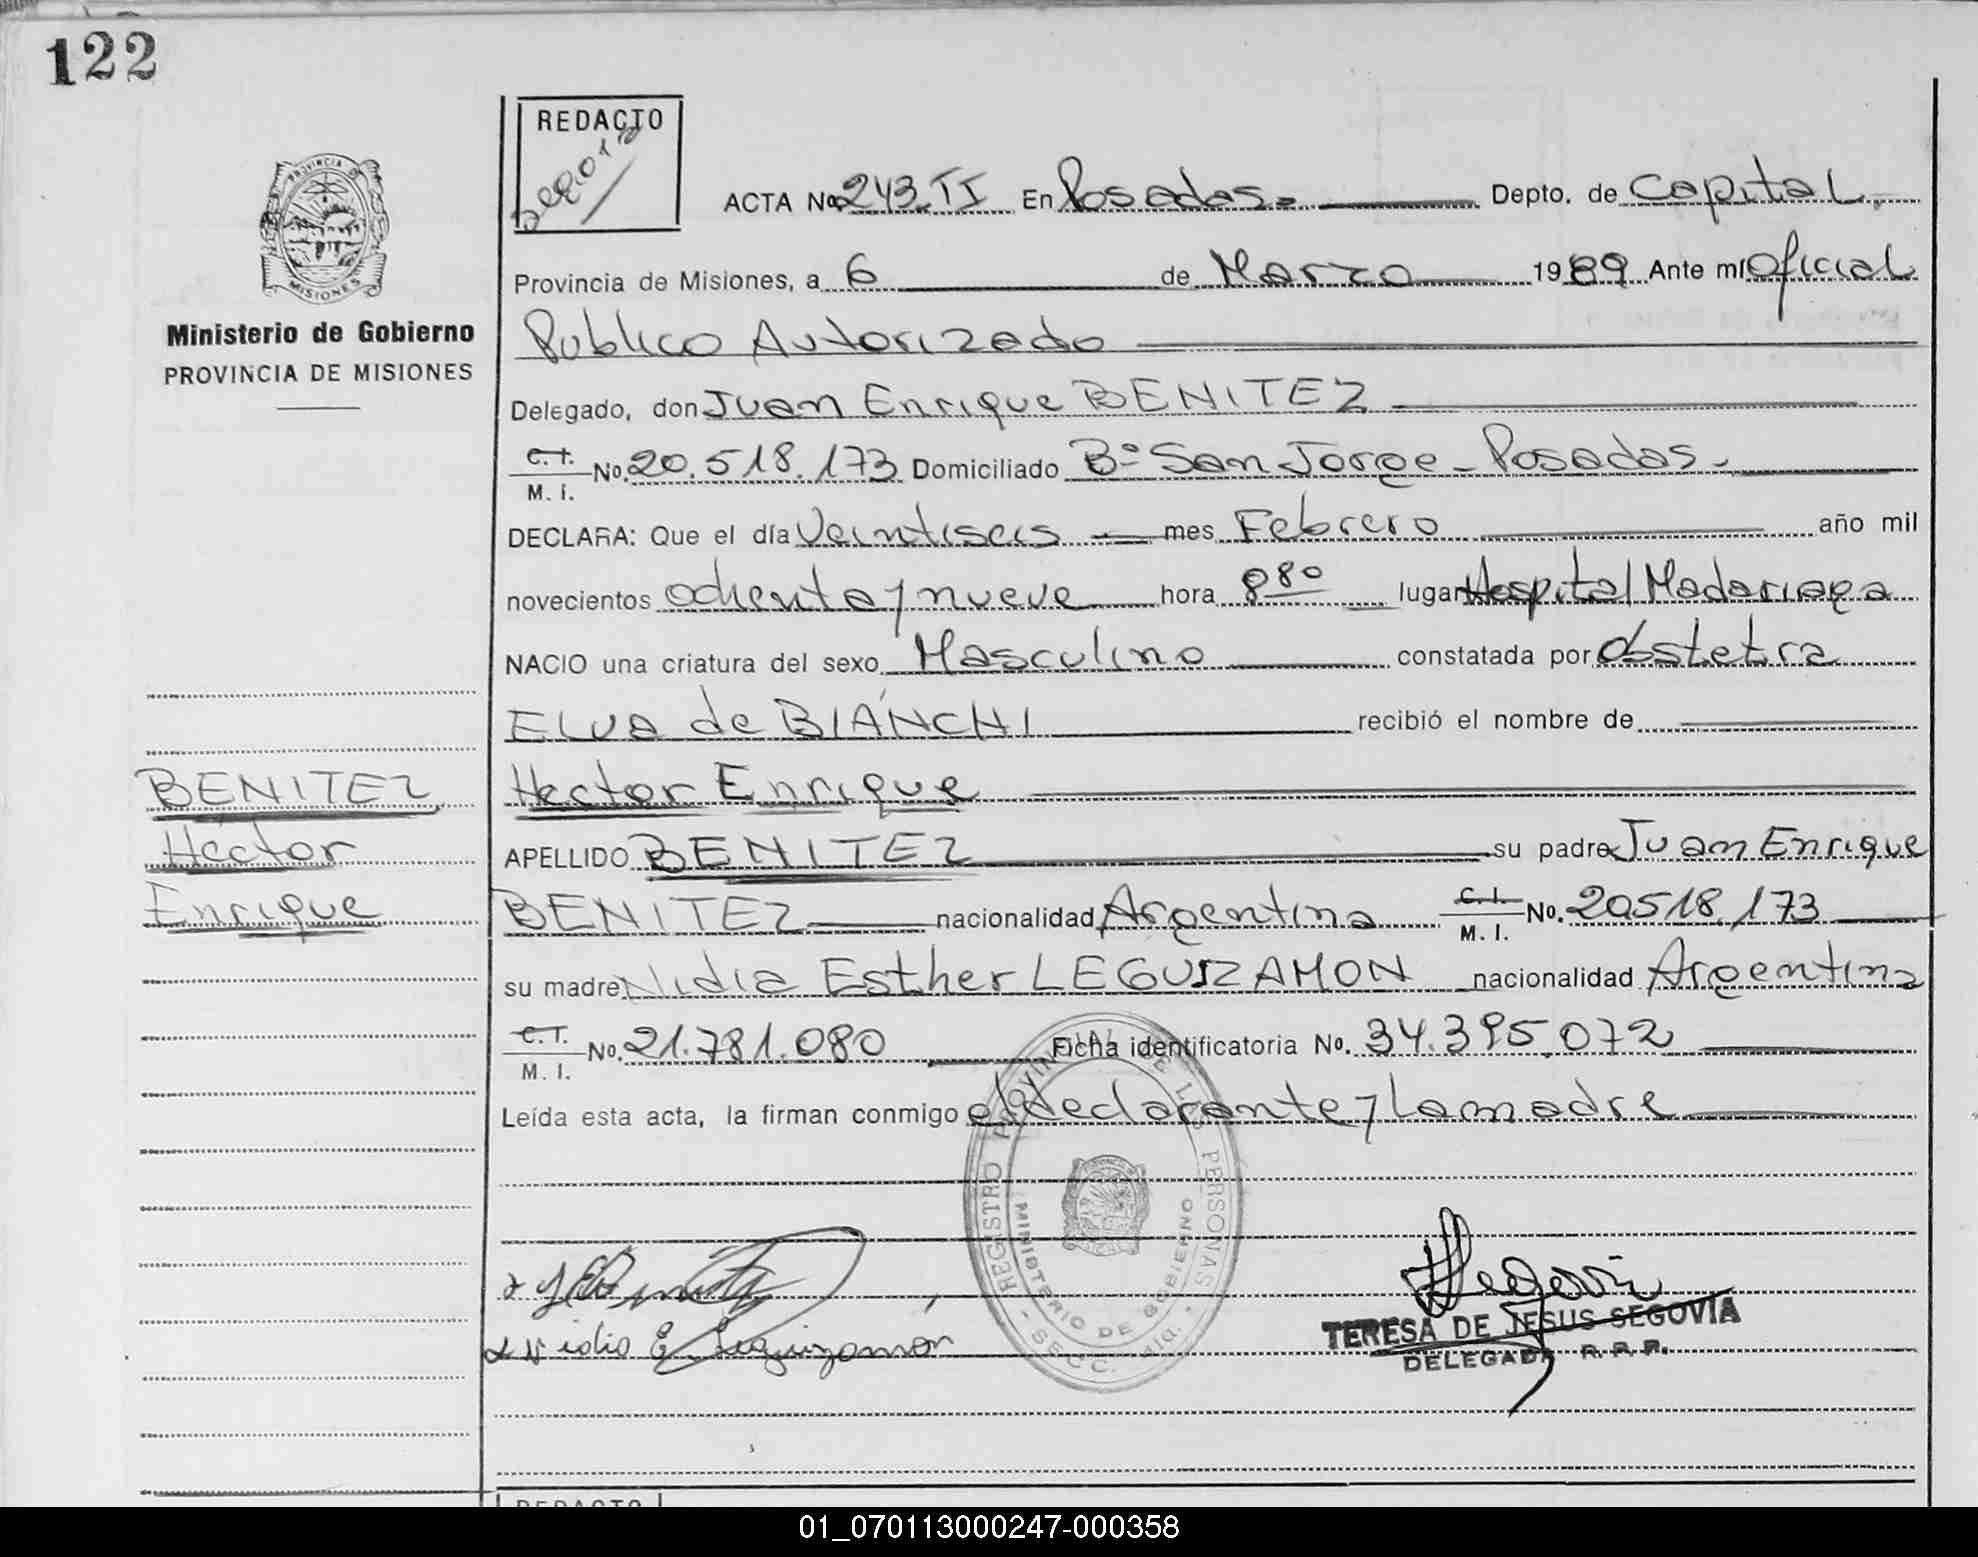 122
REDACTO
ACTA No. 243.II En Posadas.- Depto. de Capital.
Provincia de Misiones, a 6 de Marzo 1989 Ante mi Oficial
Publico Autorizado
Delegado, don Juan Enrique BENITEZ
C.I. M. I. No. 20.518.173 Domiciliado Bº San Jorge - Posadas -
DECLARA: Que el día Veintiseis mes Febrero año mil
novecientos ochenta y nueve hora 8 80 lugar Hospital Madariaga
NACIO una criatura del sexo Masculino constatada por Obstetra
ELVA de BIANCHI recibió el nombre de
Hector Enrique
APELLIDO BENITEZ su padre Juan Enrique
BENITEZ nacionalidad Argentina C.I. M. I. No. 20.518.173
su madre Nidia Esther LEGUIZAMON nacionalidad Argentina
C.I. M. I. No. 21.781.080 Ficha identificatoria No. 34.395.072
Leída esta acta, la firman conmigo el declarante y la madre
PROVINCIA DE
MISIONES
Ministerio de Gobierno
PROVINCIA DE MISIONES
BENITEZ
Héctor
Enrique
REGISTRO PROVINCIAL DE LAS PERSONAS
MINISTERIO DE GOBIERNO
SECC. 41a.
Nidia E. Leguizamon
Segovia
TERESA DE JESUS SEGOVIA
DELEGADA R. P. P.
REDACTO
01_070113000247-000358